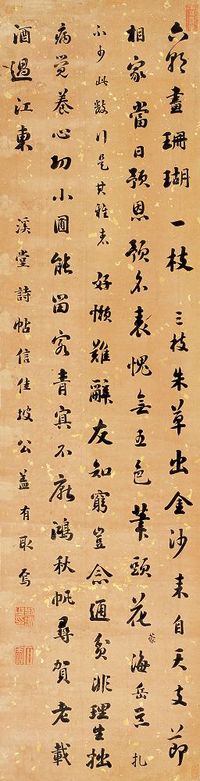 六朝畫珊瑚一枝 三枝朱草出金沙来自天支節
相家當日預恩預名表愧無五色筆頭花 海岳言札
小少此數行是其雅者 好懶難辭友知窮豈念通貧非理生拙
病覺養心功小圃能留客青冥不厭鴻秋帆尋賀老載
酒過江東 溪堂詩帖信佳坡公蓋有取焉